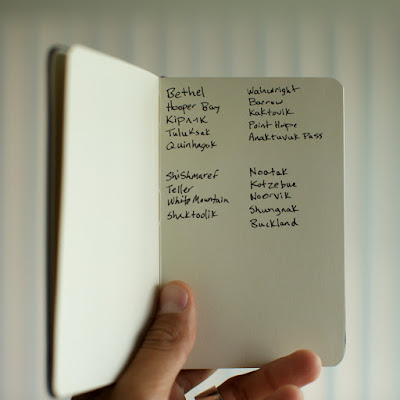 Bethel
Hooper Bay
Kipnuk
Tuluksak
Quinhaguk
Wainwright
Barrow
Kaktovik
Point Hope
Anaktuvuk Pass
Shishmaref
Teller
White Mountain
Shaktoolik
Noatak
Kotzebue
Noorvik
Shungnak
Buckland